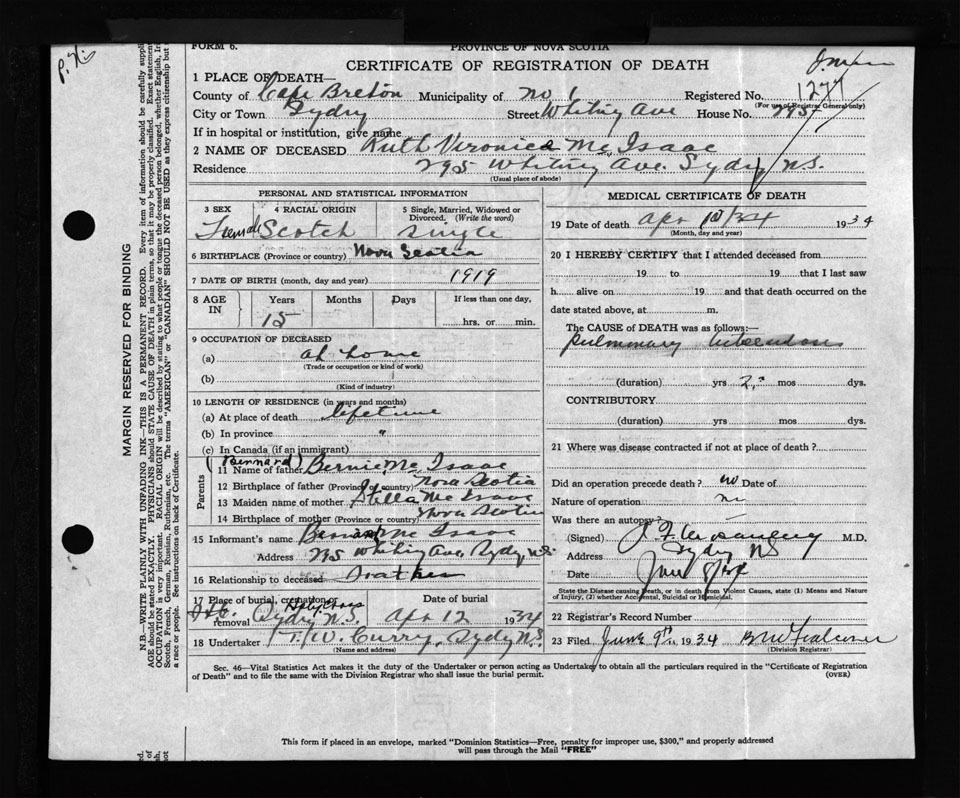 FORM 6.
PROVINCE OF NOVA SCOTIA
CERTIFICATE OF REGISTRATION OF DEATH
1 PLACE OF DEATH—
County of Cape Breton Municipality of No 1 Registered No. 1277
(For use of Registrar General only)
City or Town Sydny Street Whitney Ave House No. 295
If in hospital or institution, give name
2 NAME OF DECEASED Ruth Veronica Mc Isaac
Residence 295 Whitney Ave. Sydny N.S.
(Usual place of abode)
MARGIN RESERVED FOR BINDING
N.B.—WRITE PLAINLY WITH UNFADING INK—THIS IS A PERMANENT RECORD. Every item of information should be carefully suppli
AGE should be stated EXACTLY. PHYSICIANS should STATE CAUSE OF DEATH in plain terms, so that it may be properly classified. Exact statement
OCCUPATION is very important. RACIAL ORIGIN will be described by stating to what people or tongue the deceased person belonged, whether English, Iri
Scotch, French, German, Russian, Ruthenian, etc. The terms "AMERICAN" or "CANADIAN" SHOULD NOT BE USED as they express citizenship but not
a race or people. See instructions on back of Certificate.
PERSONAL AND STATISTICAL INFORMATION
3 SEX 4 RACIAL ORIGIN 5 Single, Married, Widowed or
Divorced. (Write the word)
Female Scotch Single
6 BIRTHPLACE (Province or country) Nova Scotia
7 DATE OF BIRTH (month, day and year) 1919
8 AGE IN Years Months Days If less than one day,
15 hrs. or min.
9 OCCUPATION OF DECEASED
(a) at home
(Trade or occupation or kind of work)
(b)
(Kind of industry)
10 LENGTH OF RESIDENCE (in years and months)
(a) At place of death lifetime
(b) In province "
(c) In Canada (if an immigrant)
Parents
(Bernard)
11 Name of father Bernie Mc Isaac
12 Birthplace of father (Province or country) Nova Scotia
13 Maiden name of mother Stella Mc Isaac
14 Birthplace of mother (Province or country) Nova Scotia
15 Informant's name Bernard Mc Isaac
Address 295 Whitney Ave, Sydny N.S.
16 Relationship to deceased Father
17 Place of burial, cremation or Date of burial
Holy Cross
removal Sydny N.S. Apr 12 1934
18 Undertaker T. W. Curry, Sydny N.S.
(Name and address)
MEDICAL CERTIFICATE OF DEATH
19 Date of death Apr 10/34 1934
(Month, day and year)
20 I HEREBY CERTIFY that I attended deceased from
19 to 19 that I last saw
h alive on 19 and that death occurred on the
date stated above, at m.
The CAUSE OF DEATH was as follows:—
Pulmonary tuberculosis
(duration) yrs 2 mos dys.
CONTRIBUTORY
(duration) yrs mos dys.
21 Where was disease contracted if not at place of death?
Did an operation precede death? no Date of
Nature of operation
Was there an autopsy?
(Signed) M.D.
Address Sydny N.S.
Date June
State the Disease causing Death, or in death from Violent Causes, state (1) Means and Nature
of Injury, (2) whether Accidental, Suicidal or Homicidal.
22 Registrar's Record Number
23 Filed June 9th 1934
(Division Registrar)
Sec. 46—Vital Statistics Act makes it the duty of the Undertaker or person acting as Undertaker to obtain all the particulars required in the "Certificate of Registration
of Death" and to file the same with the Division Registrar who shall issue the burial permit. (OVER)
This form if placed in an envelope, marked "Dominion Statistics—Free, penalty for improper use, $300," and properly addressed
will pass through the Mail "FREE"